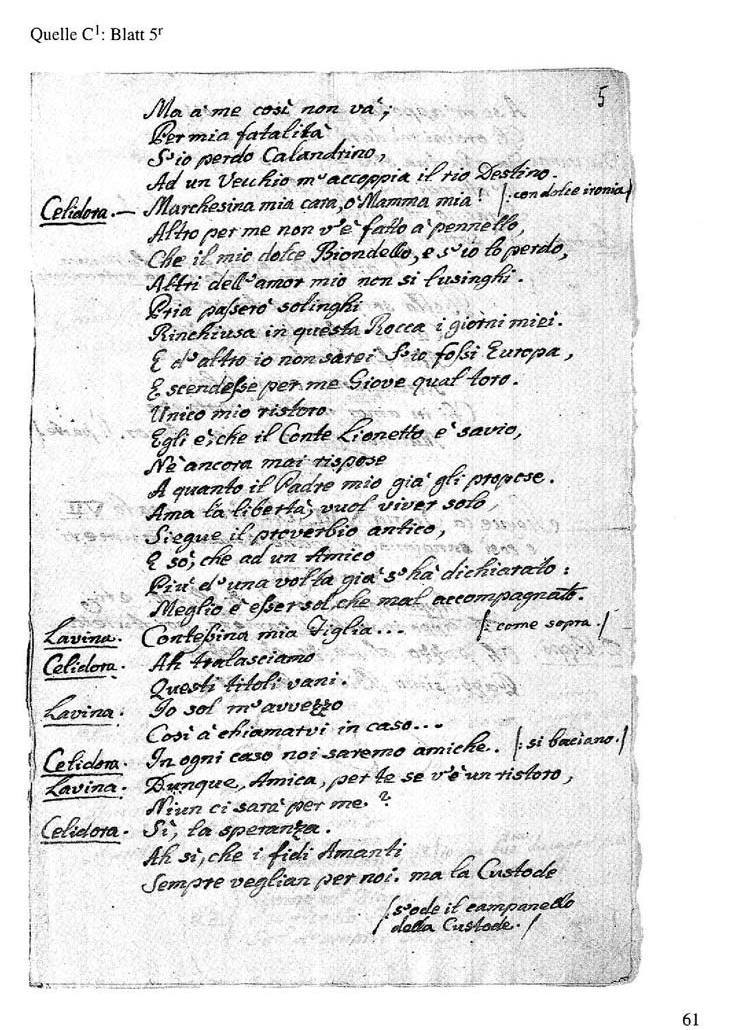 Quelle C¹: Blatt 5ʳ
5
Ma à me così non và;
Per mia fatalità
S'io perdo Calandrino,
Ad un Vecchio m'accoppia il rio Destino.
Celidora. — Marchesina mia cara, o' Mamma mia! /: con dolce ironia /
Altro per me non v'è fatto a' pennello,
Che il mio dolce Biondello, e s'io lo perdo,
Altri dell'amor mio non si lusinghi.
Pria passerò solinghi
Rinchiusa in questa Rocca i giorni miei.
E d'altro io non sarei S'io fossi Europa,
E scendesse per me Giove qual toro.
Unico mio ristoro
Egli è, che il Conte Lionetto è savio,
Nè ancora mai rispose
A quanto il Padre mio già gli propose.
Ama la libertà, vuol viver solo,
Siegue il proverbio antico,
E sò, che ad un Amico
Più d'una volta già s'hà dichiarato:
Meglio è esser sol, che mal accompagnato.
Lavina. Contessina mia Figlia... /: come sopra. /
Celidora. Ah tralasciamo
Questi titoli vani.
Lavina. Io sol m'avvezzo
Così à chiamarvi in caso...
Celidora. In ogni caso noi saremo amiche.. /: si baciano. /
Lavina. Dunque, Amica, per te se v'è un ristoro,
Niun ci sarà per me?
Celidora. Sì, la speranza.
Ah sì, che i fidi Amanti
Sempre veglian per noi. ma la Custode
/: s'ode il campanello
della Custode. /
61